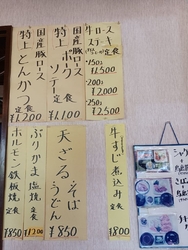 牛ロース
ステーキ定食
150g
¥1,500
200g
¥2,000
250g
¥2,500
国産豚ロース
特上ポークソテー
定食
¥1,100
国産豚ロース
特上とんかつ
定食
¥1,200
牛すじ煮込み定食
¥800
天ざるそば
うどん
¥850
ぶりかま塩焼定食
¥1200
ホルモン鉄板焼定食
¥850